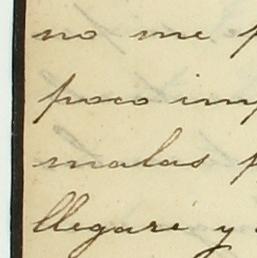 no me p
poco imp
malas p
llegaré y